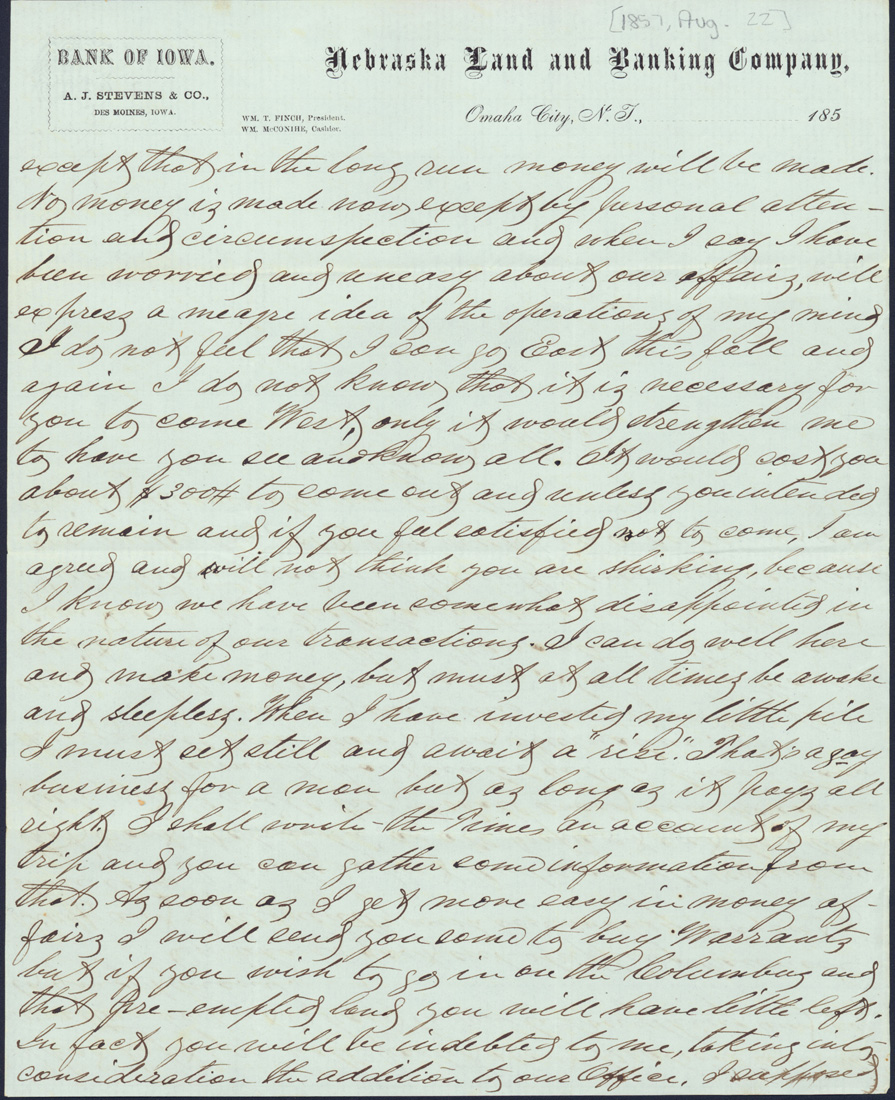 [1857, Aug. 22]
BANK OF IOWA.
A. J. STEVENS & CO.,
DES MOINES, IOWA.
Nebraska Land and Banking Company,
WM. T. FINCH, President.
WM. McCONIHE, Cashier.
Omaha City, N. T., 185
except that in the long run money will be made.
No money is made now except by personal atten-
tion and circumspection and when I say I have
been worried and uneasy about our affairs, will
express a meagre idea of the operations of my mind
I do not feel that I can go East this fall and
again I do not know that it is necessary for
you to come West, only it would strengthen me
to have you see and know all. It would cost you
about $300# to come out and unless you intended
to remain and if you feel satisfied not to come, I am
agreed and will not think you are shirking, because
I know we have been somewhat disappointed in
the nature of our transactions. I can do well here
and make money, but must at all times be awake
and sleepless. When I have invested my little pile
I must set still and await a "rise". That's a gay
business for a man but as long as it pays all
right. I shall write the Times an account of my
trip and you can gather some information from
that. As soon as I get more easy in money af-
fairs I will send you some to buy Warrants
but if you wish to go in on the Columbus and
that Pre-empted land you will have little left.
In fact you will be indebted to me, taking into
consideration the addition to our Office. I supposed